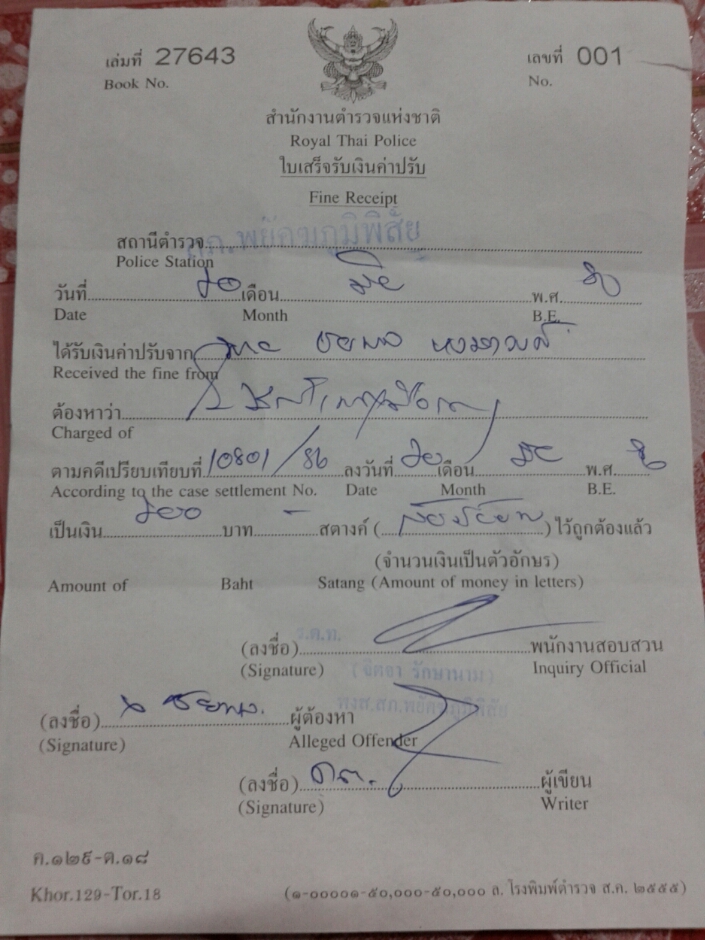 เล่มที่ 27643 เลขที่ 001
Book No. No.
สำนักงานตำรวจแห่งชาติ
Royal Thai Police
ใบเสร็จรับเงินค่าปรับ
Fine Receipt
สถานีตำรวจ สภ.พยัคฆภูมิพิสัย
Police Station
วันที่ เดือน พ.ศ.
Date Month B.E.
ได้รับเงินค่าปรับจาก
Received the fine from
ต้องหาว่า
Charged of
ตามคดีเปรียบเทียบที่ 10801/56 ลงวันที่ เดือน พ.ศ.
According to the case settlement No. Date Month B.E.
เป็นเงิน บาท - สตางค์ ( ) ไว้ถูกต้องแล้ว
(จำนวนเงินเป็นตัวอักษร)
Amount of Baht Satang (Amount of money in letters)
ร.ต.ท.
(ลงชื่อ) พนักงานสอบสวน
(Signature) Inquiry Official
(ลงชื่อ) ผู้ต้องหา
(Signature) Alleged Offender
(ลงชื่อ) ด.ต. ผู้เขียน
(Signature) Writer
ค.๑๒๙-ต.๑๘
Khor.129-Tor.18 (๑-๐๐๐๐๑-๕๐,๐๐๐-๕๐,๐๐๐ ล. โรงพิมพ์ตำรวจ ส.ค. ๒๕๕๕)